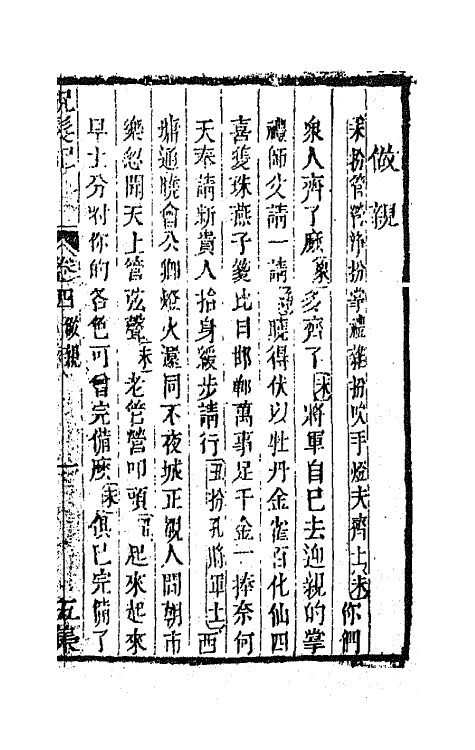 做親
末扮管營淨扮掌禮雜扮吹手燈夫齊上末你們
衆人齊了麽衆多齊了末將軍自已去迎親的掌
禮師父請一請淨曉得伏以牡丹金雀百化仙四
喜雙珠燕子箋比目邯鄲萬事足千金一捧奈何
天奉請新貴人抬身緩步請行丑扮孔將軍上西
廂通曉會公卿燈火瀛同不夜城正覩人間朝市
樂忽聞天上管弦聲末老管營叩頭丑起來起來
早上分付你的各色可曾完備麽末俱已完備了
卷四 做親 一 五集